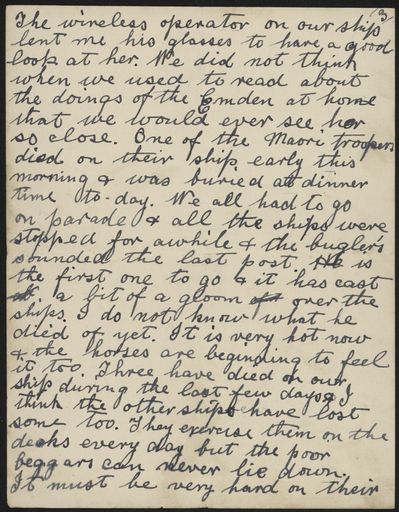 13/
The wireless operator on our ship
lent me his glasses to have a good
look at her. We did not think
when we used to read about
the doings of the Emden at home
that we would ever see her
so close. One of the Maori troopers
died on their ship early this
morning & was buried at dinner
time to-day. We all had to go
on parade & all the ships were
stopped for awhile & the bugler's
sounded the last post. is
the first one to go & it has cast
a bit of a gloom over the
ships. I do not know what he
died of yet. It is very hot now
& the horses are beginding to feel
it too. Three have died on our
ship during the last few days & I
think the other ships have lost
some too. They exercise them on the
decks every day but the poor
beggars can never lie down.
It must be very hard on their